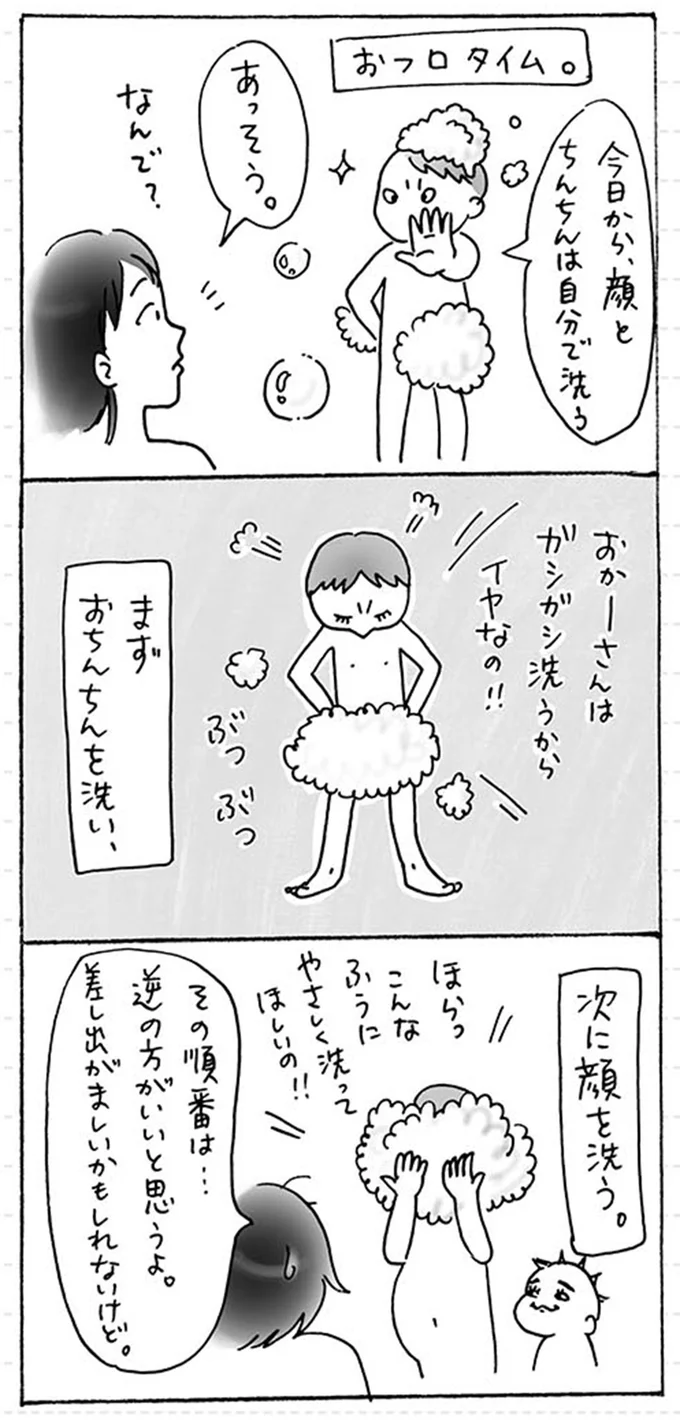 おフロタイム。
今日から、顔と
ちんちんは自分で洗う
あっそう。
なんで?
おかーさんは
ガシガシ洗うから
イヤなの!!
ぶつ
ぶつ
まず
おちんちんを洗い、
次に顔を洗う。
ほらっ
こんな
ふうに
やさしく洗って
ほしいの!!
その順番は…
逆の方がいいと思うよ。
差し出がましいかもしれないけど。